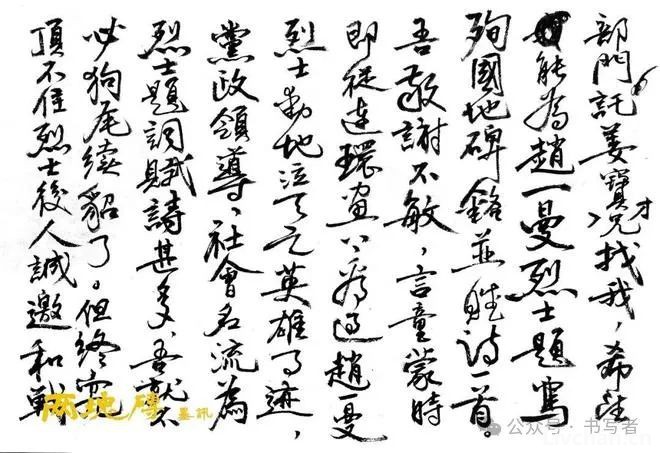 部門託姜寶才兄找我，希望
能為趙一曼烈士題寫
殉國地碑銘並賦詩一首。
吾敬謝不敏，言童蒙時
即從連環畫上看過趙一曼
烈士動地泣天之英雄事迹，
黨政領導、社會名流為
烈士題詞賦詩甚多、吾就不
必狗尾續貂了。但終究
頂不住烈士後人誠邀和戰
兩塊磚 墨訊
公众号 · 书写者